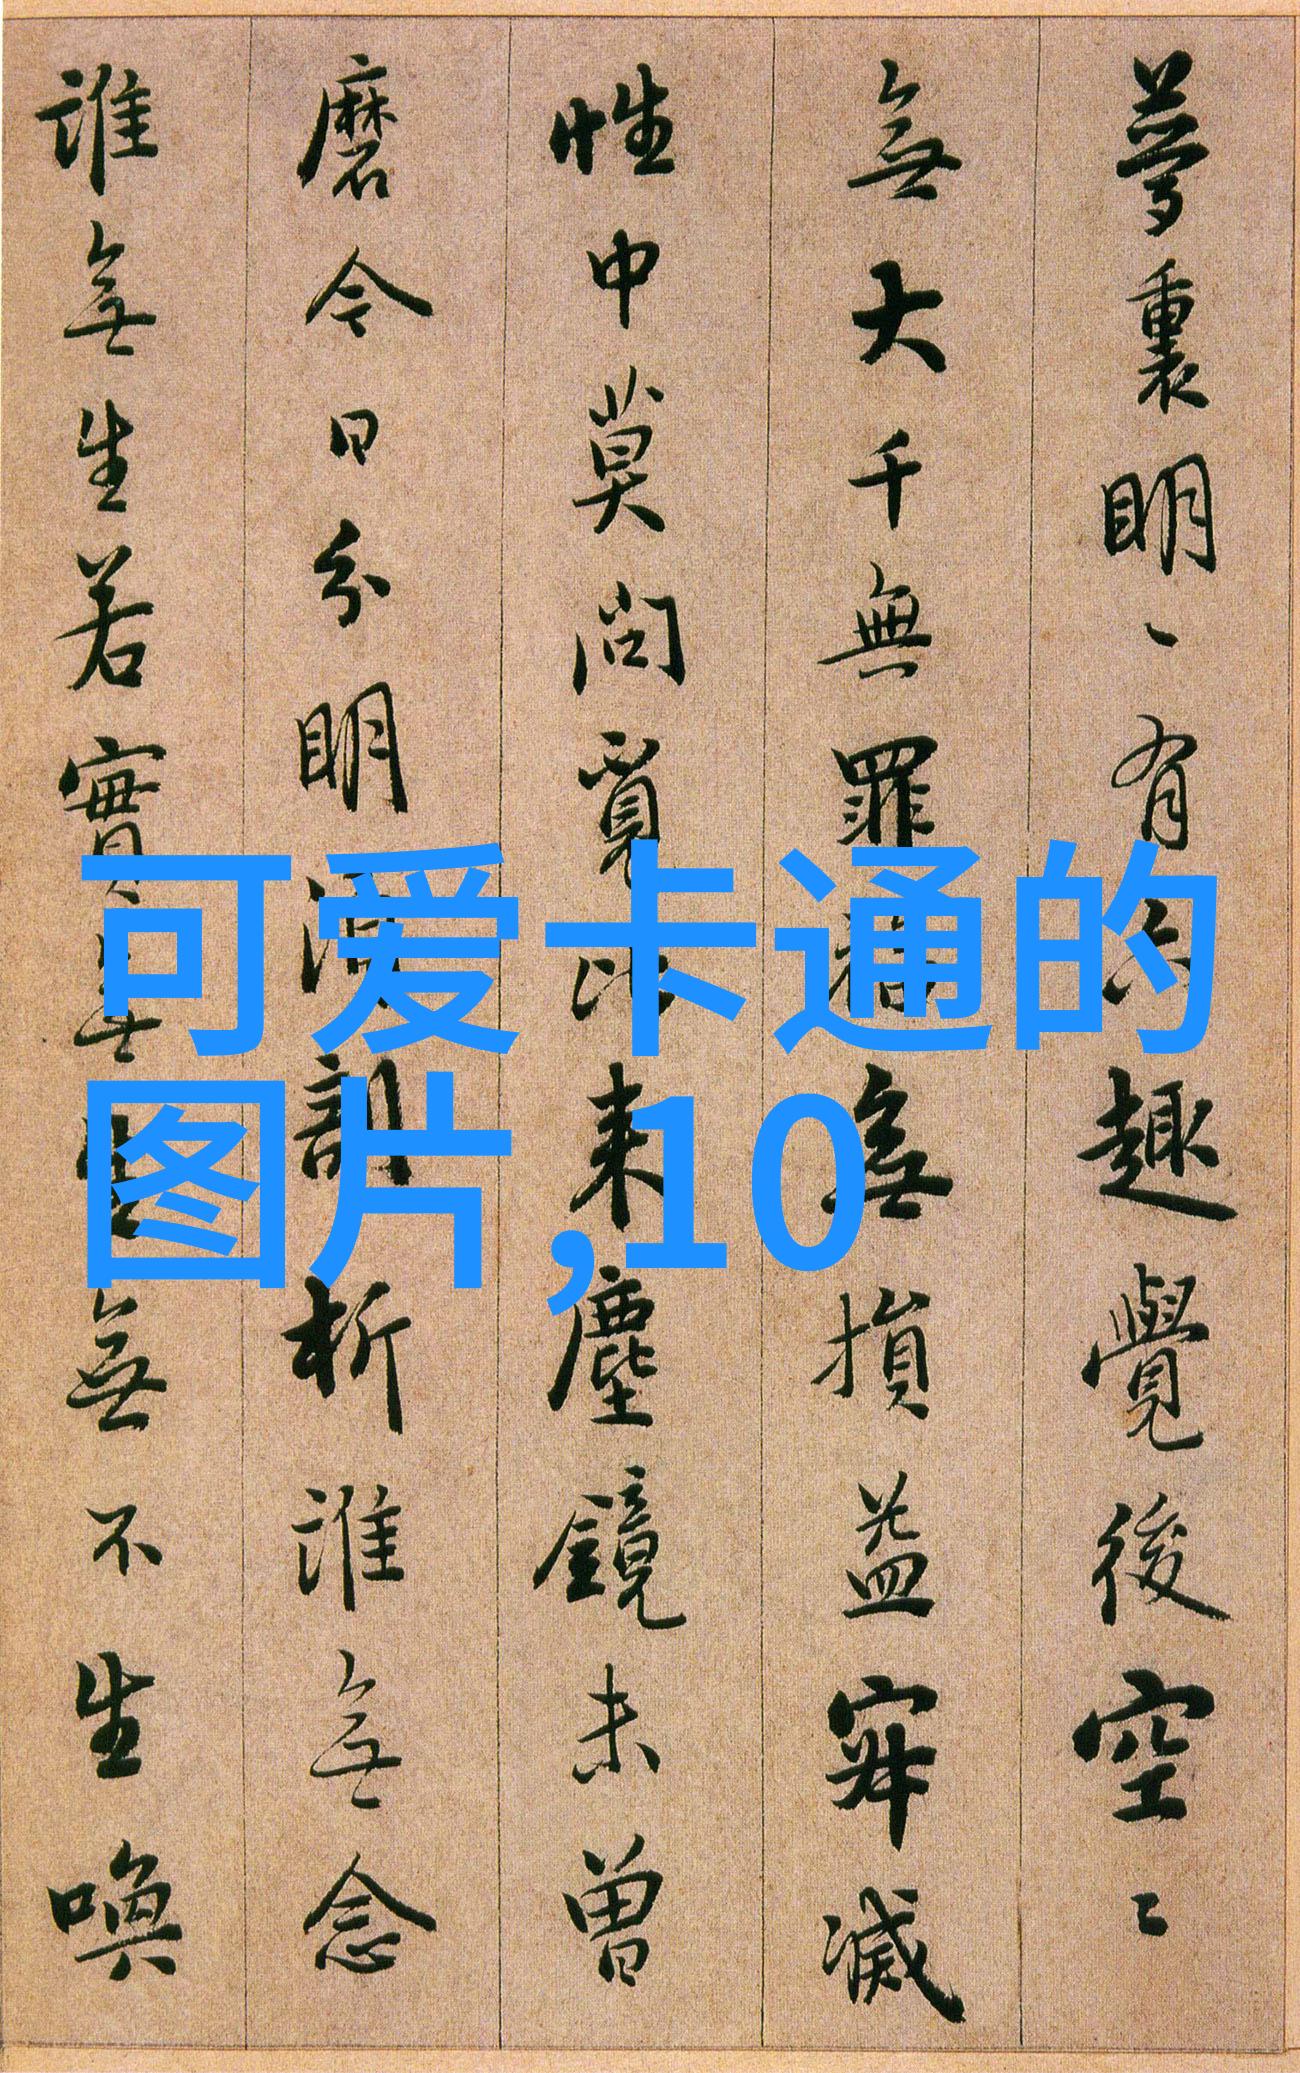 夢裏明〻有六趣覺後空〻
無大千無罪福無損益寂滅
性中莫問覓比来塵鏡未曾
磨今日分明須剖析誰無念
誰無生若實無生無不生喚
可爱卡通的
图片,10